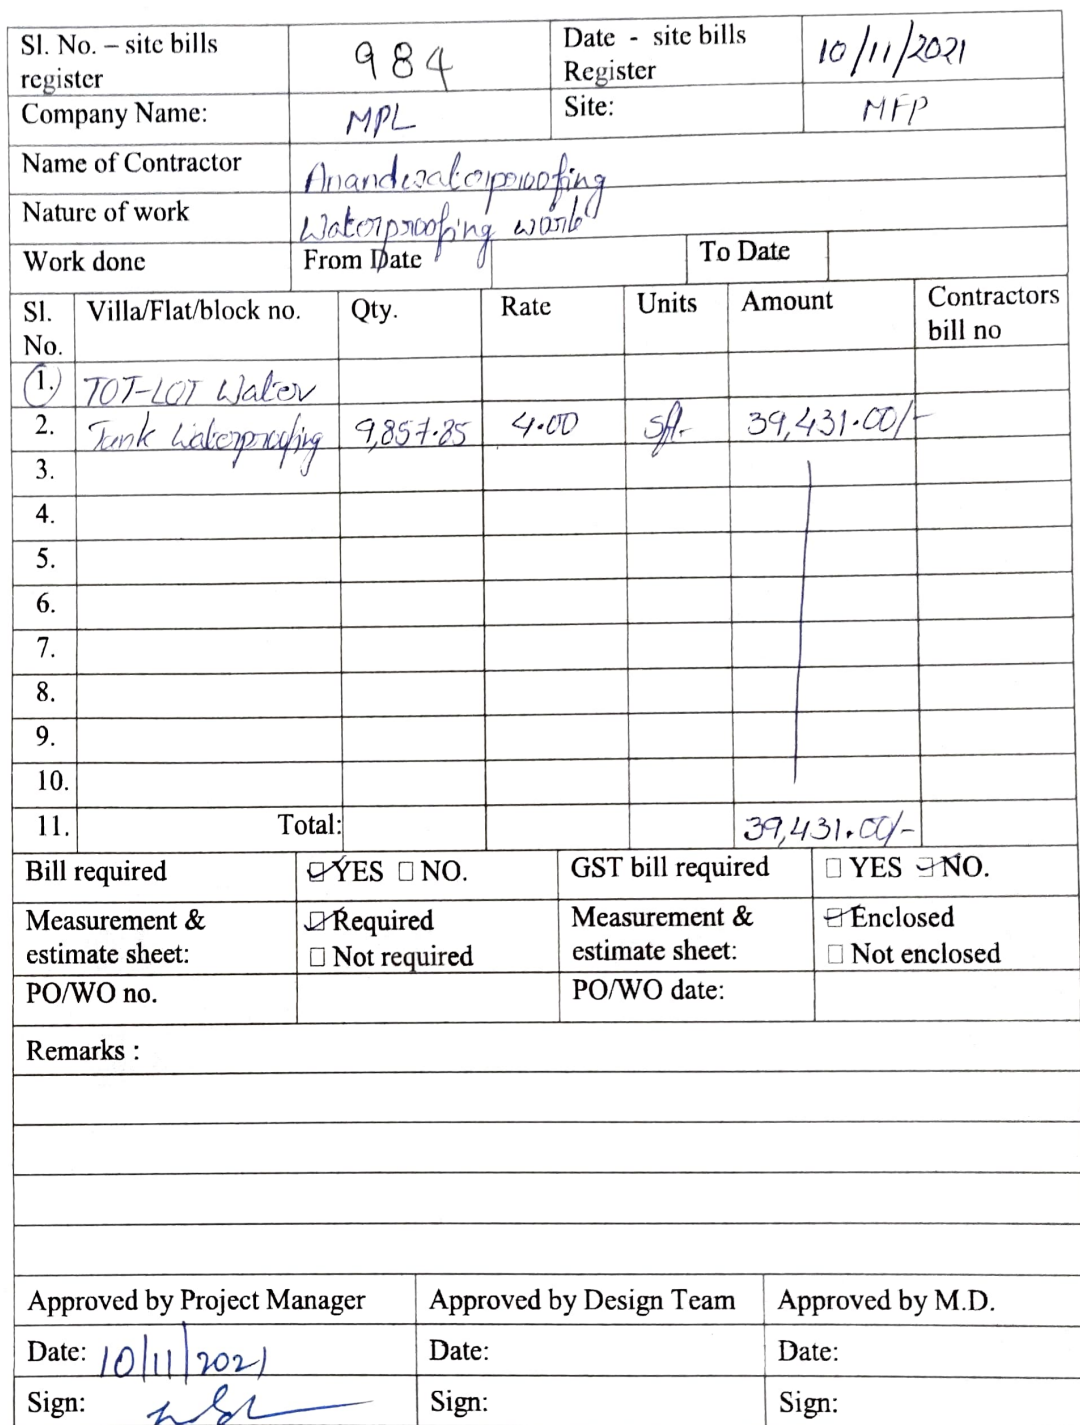 Sl. No. – site bills register 984 Date - site bills Register 10/11/2021
Company Name: MPL Site: MFP
Name of Contractor Anandwaterproofing
Nature of work Waterproofing work
Work done From Date To Date
Sl. No. Villa/Flat/block no. Qty. Rate Units Amount Contractors bill no
1. TOT-LOT Water
2. Tank Waterproofing 9,857.85 4.00 sft. 39,431.00/-
3.
4.
5.
6.
7.
8.
9.
10.
11. Total: 39,431.00/-
Bill required ☑ YES ☐ NO. GST bill required ☐ YES ☑ NO.
Measurement & estimate sheet: ☑ Required ☐ Not required Measurement & estimate sheet: ☑ Enclosed ☐ Not enclosed
PO/WO no. PO/WO date:
Remarks :
Approved by Project Manager Approved by Design Team Approved by M.D.
Date: 10/11/2021 Date: Date:
Sign: Sign: Sign: